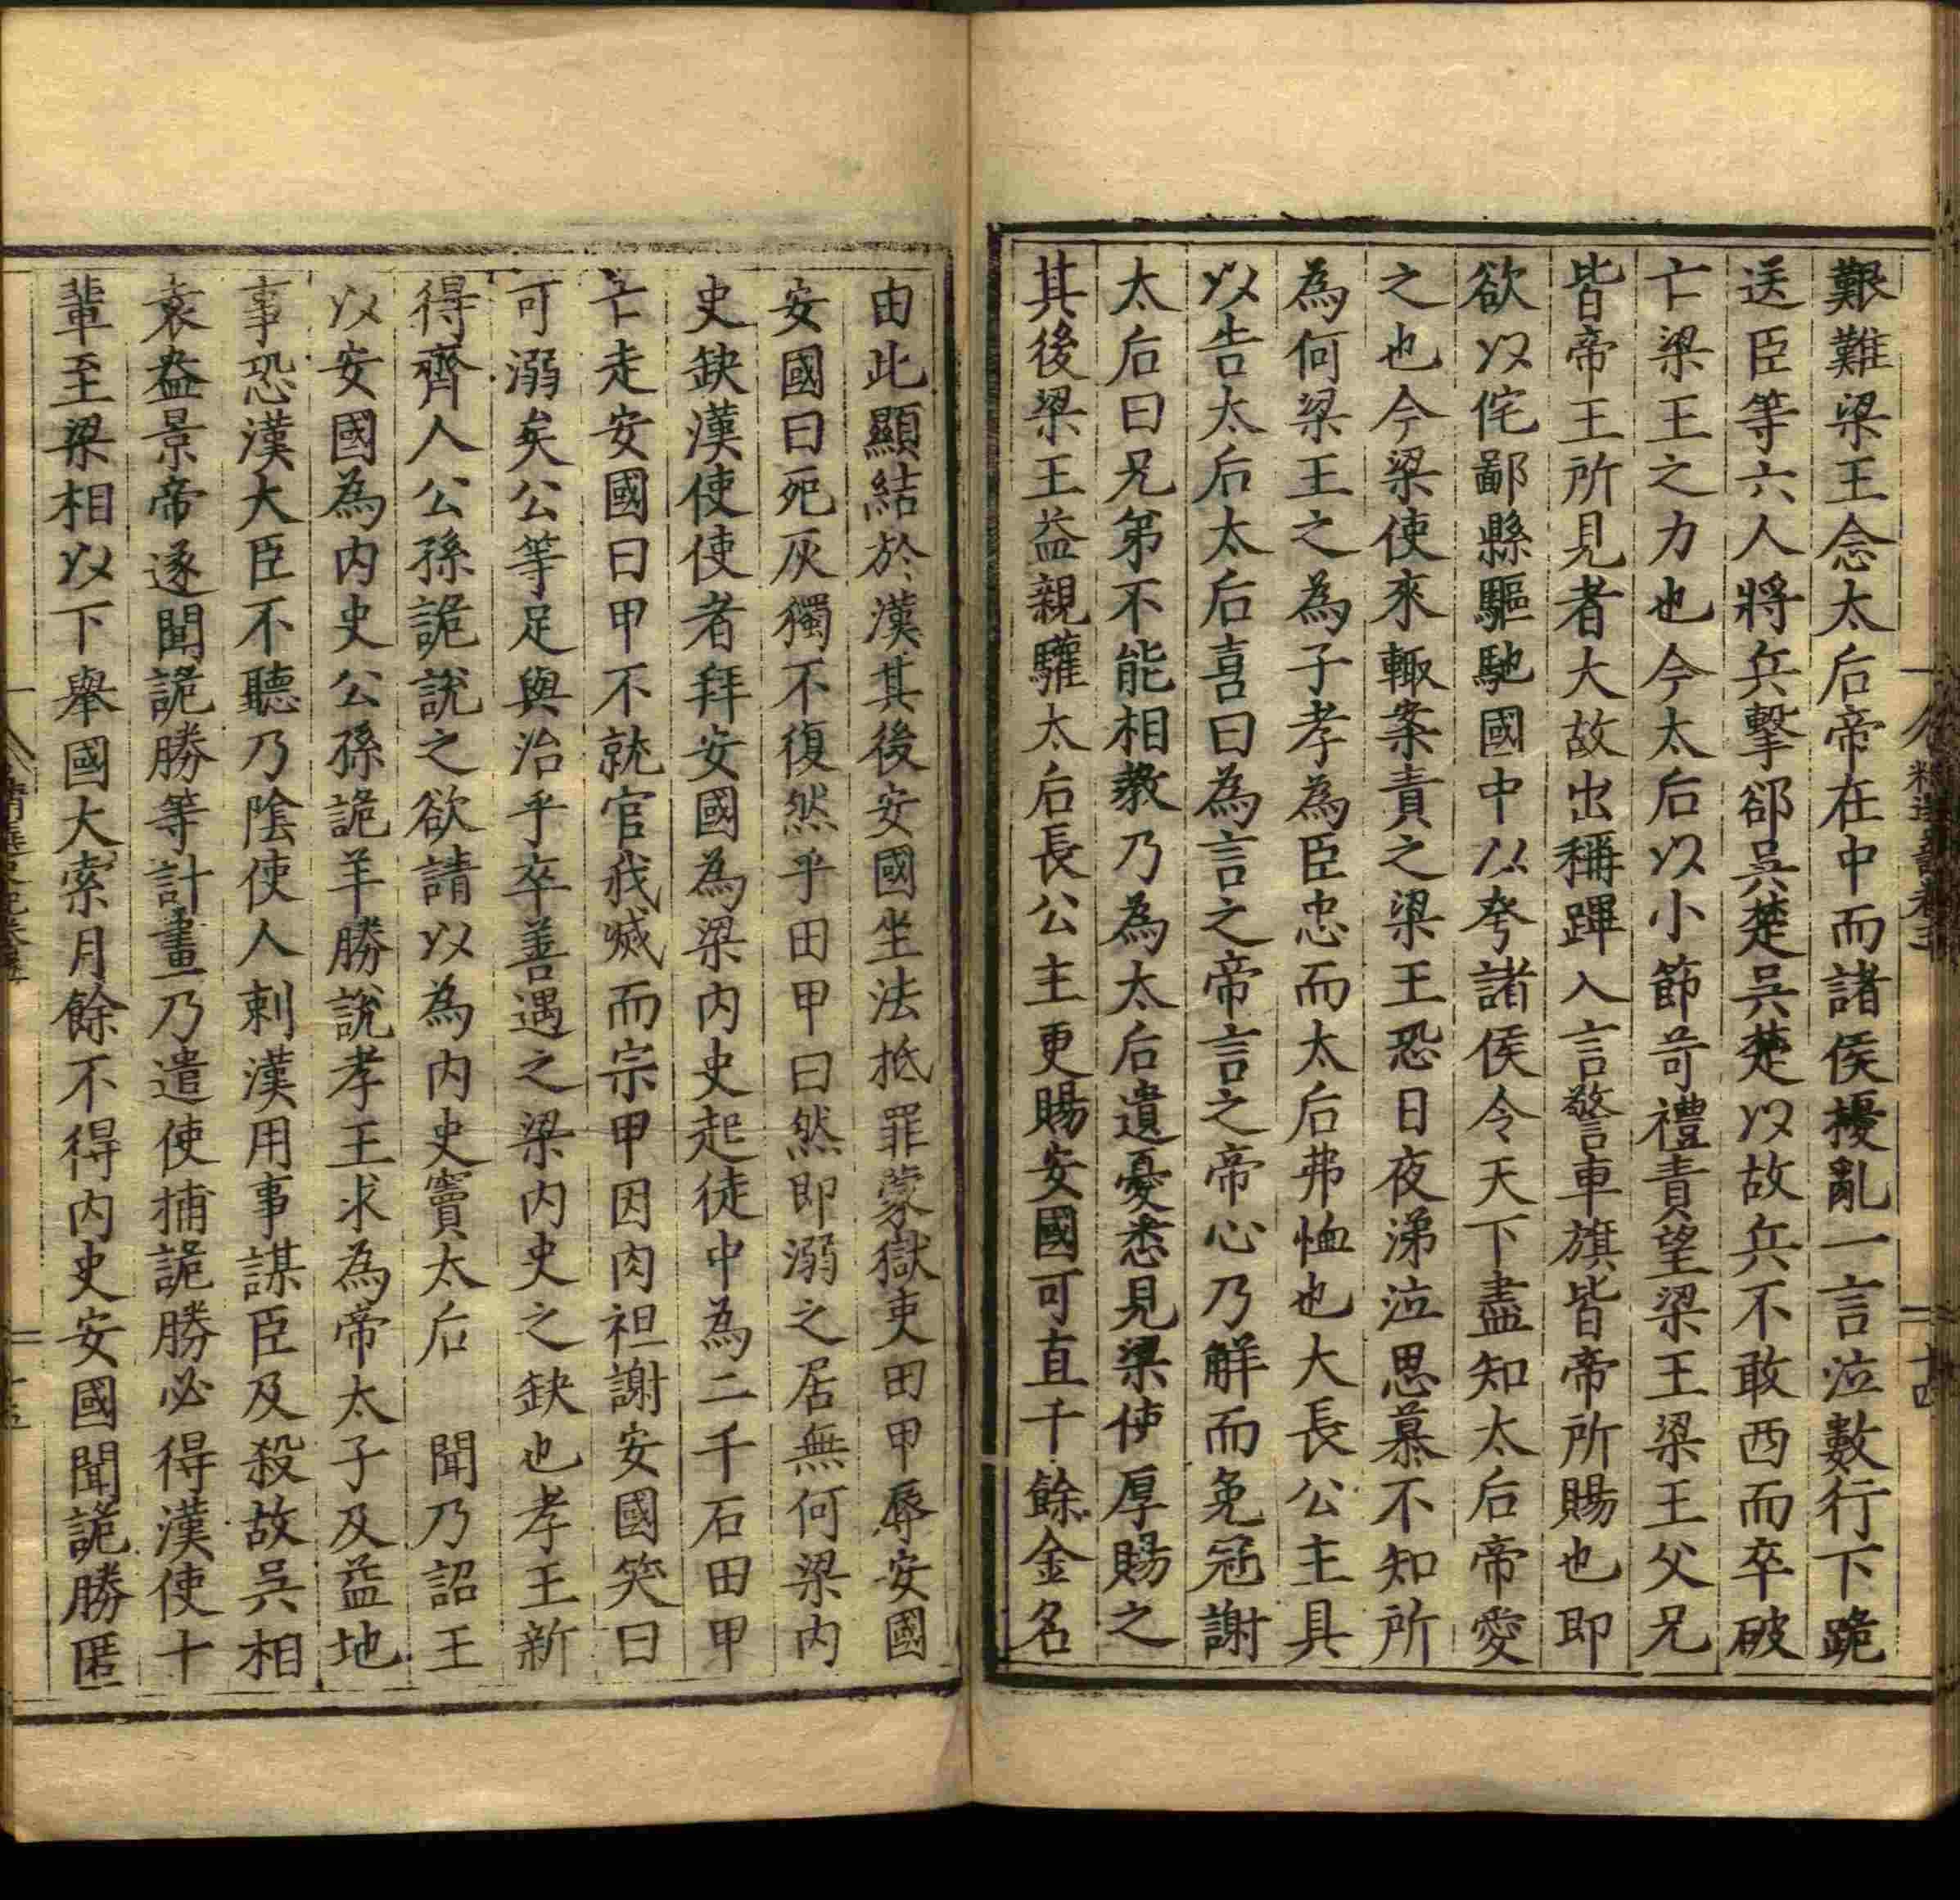 艱難梁王念太后帝在中而諸侯擾亂一言泣數行下跪
送臣等六人將兵擊郤吳楚吳楚以故兵不敢西而卒破
亡梁王之力也今太后以小節苛禮責望梁王梁王父兄
皆帝王所見者大故出稱蹕入言警車旗皆帝所賜也即
欲以侘鄙縣驅馳國中以夸諸侯令天下盡知太后帝愛
之也今梁使來輙案責之梁王恐日夜涕泣思慕不知所
為何梁王之為子孝為臣忠而太后弗恤也大長公主具
以告太后太后喜曰為言之帝言之帝心乃解而免冠謝
太后曰兄弟不能相教乃為太后遺憂悉見梁使厚賜之
其後梁王益親驩太后長公主更賜安國可直千餘金名
由此顯結於漢其後安國坐法抵罪蒙獄吏田甲辱安國
安國曰死灰獨不復然乎田甲曰然即溺之居無何梁內
史缺漢使使者拜安國為梁內史起徒中為二千石田甲
亡走安國曰甲不就官我滅而宗甲因肉袒謝安國笑曰
可溺矣公等足與治乎卒善遇之梁內史之缺也孝王新
得齊人公孫詭說之欲請以為內史竇太后　聞乃詔王
以安國為內史公孫詭羊勝說孝王求為帝太子及益地
事恐漢大臣不聽乃陰使人刺漢用事謀臣及殺故吳相
袁盎景帝遂聞詭勝等計畫乃遣使捕詭勝必得漢使十
輩至梁相以下舉國大索月餘不得內史安國聞詭勝匿